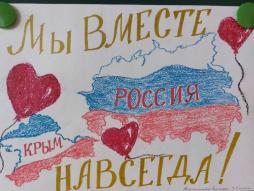 Мы ВМЕСТЕ
РОССИЯ
КРЫМ
НАВСЕГДА!